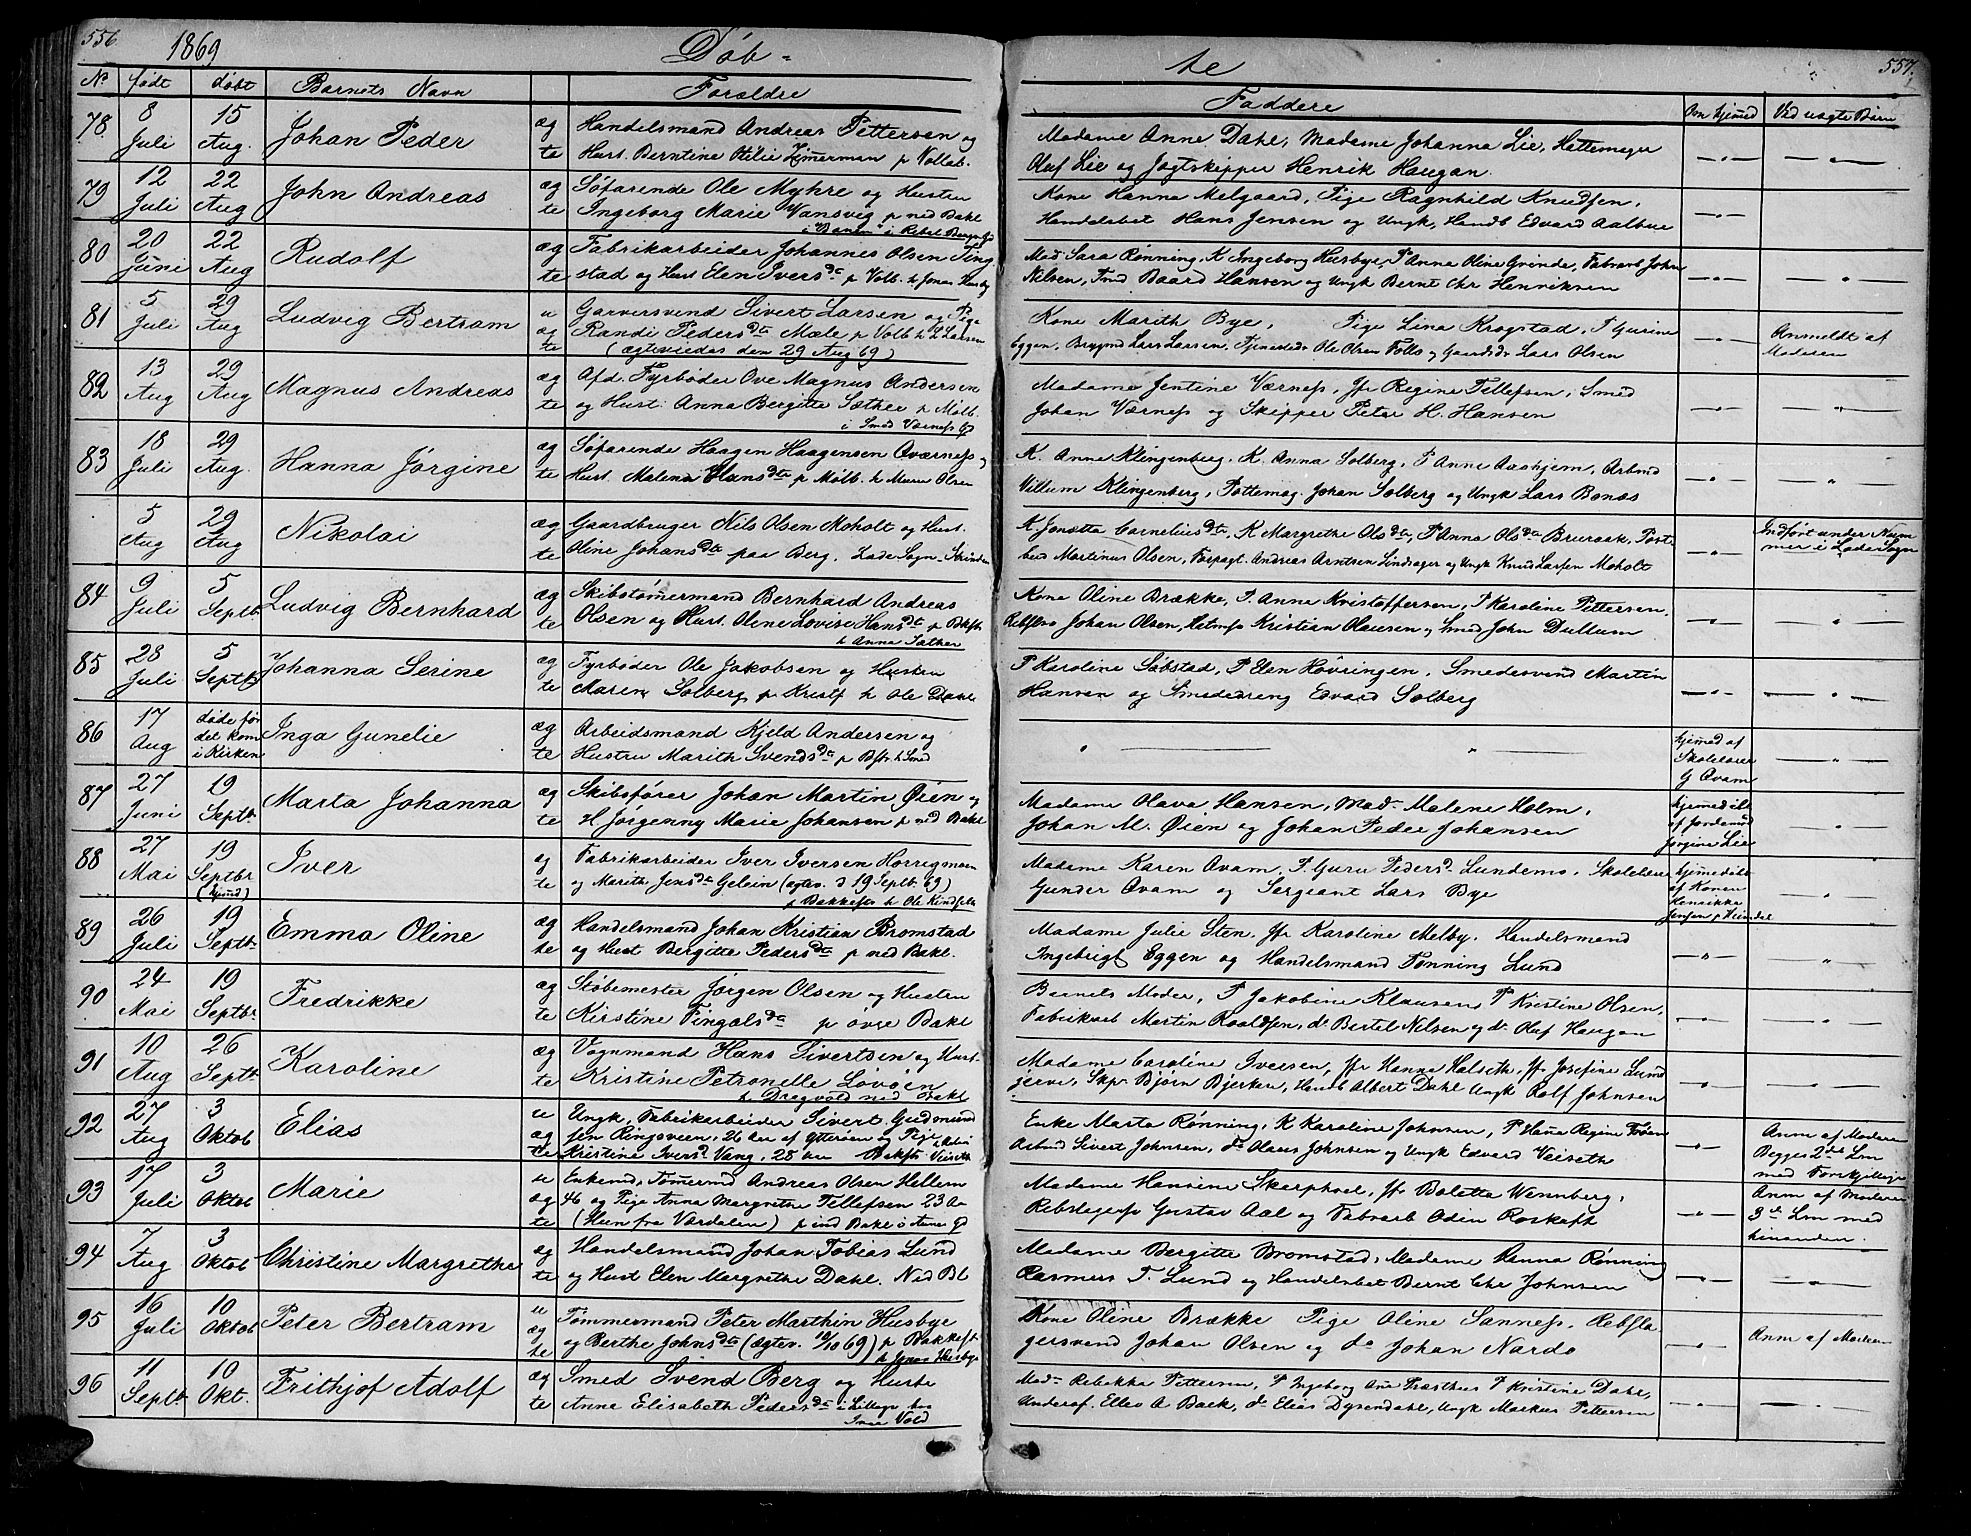 556 1869 Döb-
te 557.
No født døbt Barnets Navn Forældre
Faddere Om hjemd Ved uægte Børn
78. 8 Juli 15 Aug. Johan Peder ægte Handelsmand Andreas Pettersen og
Hust. Berntine Otilie Zimerman p Vollab.
Madame Anne Dahl, Madame Johanna Lie, Hattemager
Oluf Lie og Jagtskipper Henrik Haugan.
79 12 Juli 22 Aug John Andreas ægte Søfarende Ole Myhre og Husten
Ingeborg Marie Vansvig p ned Bakl
Kone Hanna Melgaard, Pige Ragnhild Knudsen,
Handelsbet Hans Jensen og Ungk, Handb Edvard Aalbue
80 20 Juni 22 Aug Rudolf ægte Fabrikarbeider Johannes Olsen Ting
stad og Hust Elen Ivers dt p Volb. h Jonas Husby
Mad Sara Rønning, K Ingeborg Husbye, P Anna Oline Grinde, Fabarb John
Nilsen, Smd Baard Hansen og Ungk Bernt Chr Henriksen
81 5 Juli 29 Aug Ludvig Bertram uægte Garversvend Sivert Larsen og Pige
Randi Peders dt Mæle p Volb h L Larsen
(ægteviedes den 29 Aug 69)
Kone Marith Bye, Pige Lina Krogstad, P Gurine
Eggen, Brygmd Lars Larsen, Tjenestedr Ole Olsen Folls og Gaardsdr Lars Olsen
Anmeldt af
Moderen
82 13 Aug 29 Aug Magnus Andreas ægte Afd. Fyrbøder Ove Magnus Andersen
og Hust. Anna Bergitte Sæther p Mølb.
i Smed Værnes Gd
Madame Jentine Værness, Jfr Regine Tellefsen, Smed
Johan Værness og Skipper Peter H. Hansen
83 18 Juli 29 Aug. Hanna Jørgine ægte Søfarende Haagen Haagensen Qvarness og
Hust. Malena Hans dt p Mølb. h Murer Olsen
K. Anne Klingenberg, K. Anna Solberg, P Anne Aashjem, Arbmd
Villum Klingenberg, Pottemag. Johan Solberg og Ungk Lars Bonaas
5 Aug 29 Aug Nikolai ægte Gaardbruger Nils Olsen Moholt og Hust.
Oline Johans dt paa Berg. Lade Sogn - Strinden
K. Jonetta Cornelius dt, K Margrethe Ols dt, P Anna Ols dt Bruraak, Post
bud Martinus Olsen, Forpagt. Andreas Arntsen Lindsager og Ungk Knud Larsen Moholt
Indført under Num
mer i Lade Sogn
84 9 Juli 5 Septb. Ludvig Bernhard ægte Skibstømermand Bernhard Andreas
Olsen og Hust. Oline Lovise Hans dt p Bakft
h Anna Sæther
Kone Oline Brække, P. Anne Kristoffersen, P Karoline Pettersen,
Rebslsv Johan Olsen, Kristian Olausen og Smed John Dullum
85 28 Juli 5 Septb Johanna Serine ægte Fyrbøder Ole Jakobsen og Husten
Maren Solberg p Kristf h Ole Dahl
P Karoline Søbstad, P Elen Høvringen, Smedesvend Martin
Hansen og Smededreng Edvard Solberg
86 17 Aug døde før
det kom
i Kirken Inga Gunelie ægte Arbeidsmand Kjeld Andersen og
Hustru Marith Svends dt p Bkft. h Smed
hjemed af
Skolelærer
G Qvam
87 27 Juni 19 Septb. Marta Johanna ægte Skibsfører Johan Martin Øien og
H. Jørgenny Marie Johansen p ned Bakl
Madame Olava Hansen, Mad. Malene Holm,
Johan M. Øien og Johan Peder Johansen
hjemedøbt
af Jordemod
Jørgine Lie
88 27 Mai 19 Septbr (hjemd) Iver ægte Fabrikarbeider Iver Iversen Horrigmoen
og Marith Jens dt Gelein (ægtev. d 19 Septb. 69)
p Bakkeft h Ole Kindsetn
Madame Karen Qvam, P. Guru Peders d. Lundemo, Skolelærer
Gunder Qvam og Sergeant Lars Bye
hjemedøbt
af Konen
Henrikke
Jensen
89 26 Juli 19 Septb. Emma Oline ægte Handelsmand Johan Kristian Bromstad
og Hust Bergitte Peders dt p ned Bakl.
Madame Julie Sten, Jfr Karoline Melby, Handelsmand
Ingebrigt Eggen og Handelsmand Tønning Lund
90 24 Mai 19 Septbr Fredrikke ægte Støbemester Jørgen Olsen og Husten
Kirstine Fingals dt p øvre Bakl
Barnets Moder, P Jakobine Klausen, P Kristine Olsen,
Fabrikarb Martin Roaldsen, do Bertel Nilsen og do Oluf Haugan
91 10 Aug 26 Septb. Karoline ægte Vognmand Hans Sivertsen og Hust.
Kristine Petronelle Løvøen
h Dragvold ned Bakl
Madame Caroline Iversen, Jfr Hanna Halseth, Jfr Josefine Lund
gjerve, Skpr Bjørn Bjerken, Handb Albert Dahl Ungk Rolf Johnsen
92 27 Aug 3 Oktob Elias uægte Ungk, Fabrikarbeider Sivert Gudmund
sen Ringsveen, 26 Aar af Ytterøen og Pige
Kristine Ivers d Vang, 28 Aar Bakft. Veiseth
Enke Marta Rønning, K Karoline Johnsen, P Hana Regine Froen
Arbmd Sivert Johnsen, do Olaus Johnsen og Ungk Edvard Veiseth
Anm af Moderen
Begges 2de Lm
med Forskjellige
93 17 Juli 3 Oktob Marie uægte Enkemd, Tømermd Andreas Olsen Hellem
46 og Pige Anna Margrethe Tellefsen 23 Aar
(Hun fra Værdalen) p ned Bakl
Madame Hansine Skerphoel, Jfr Bolette Wennberg,
Rebslagersv Gustav Aal og Fabrarb Odin Roskaft
Anm af Moderen
3de Lm med
hinanden.
94 7 Aug 3 Oktob Christine Margrethe ægte Handelsmand Johan Tobias Lund
og Hust Elen Margrethe Dahl. Ned Bl
Madame Bergitte Bromstad, Madame Hanna Rønning
Rasmus T. Lund og Handelsbet Bernt Chr Johnsen
95 16 Juli 10 Oktob Peter Bertram uægte Tømmermand Peter Marthin Husbye
og Berthe Johns dt (ægtev. 10/10 69) p Bakkeft
h Jonas Husbye
Kone Oline Brække Pige Oline Sanness, Rebsla
gersvend Johan Olsen og do Johan Nardo
Anm af Moderen
96 11 Septb. 10 Okt. Frithjof Adolf ægte Smed Svend Berg og Hust
Anne Elisabeth Peders dt i Lillegr hos
Vold
Mad. Rebekka Pettersen, P Ingeborg Ane Præsthus P Kristine Dahl,
Underof. Elles A Bæk, do Elias Dysendahl, Ungk Markus Pettersen